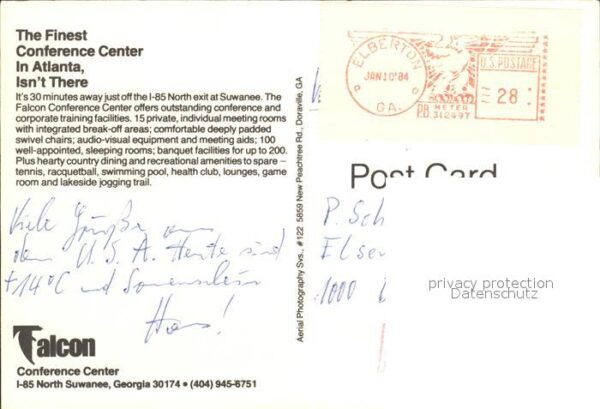 The Finest
Conference Center
In Atlanta,
Isn't There
It's 30 minutes away just off the I-85 North exit at Suwanee. The
Falcon Conference Center offers outstanding conference and
corporate training facilities. 15 private, individual meeting rooms
with integrated break-off areas; comfortable deeply padded
swivel chairs; audio-visual equipment and meeting aids; 100
well-appointed, sleeping rooms; banquet facilities for up to 200.
Plus hearty country dining and recreational amenities to spare –
tennis, racquetball, swimming pool, health club, lounges, game
room and lakeside jogging trail.
Viele Grüße aus
den U.S.A. Heute sind
+14°C und Sonnenschein
Hans!
Falcon
Conference Center
I-85 North Suwanee, Georgia 30174 • (404) 945-6751
Aerial Photography Svs., #122 5859 New Peachtree Rd., Doraville, GA
ELBERTON
JAN 10 '84
GA.
U.S. POSTAGE
28
METER
P.B. 312497
Post Card
P. Sch
Elsen
1000
privacy protection
Datenschutz